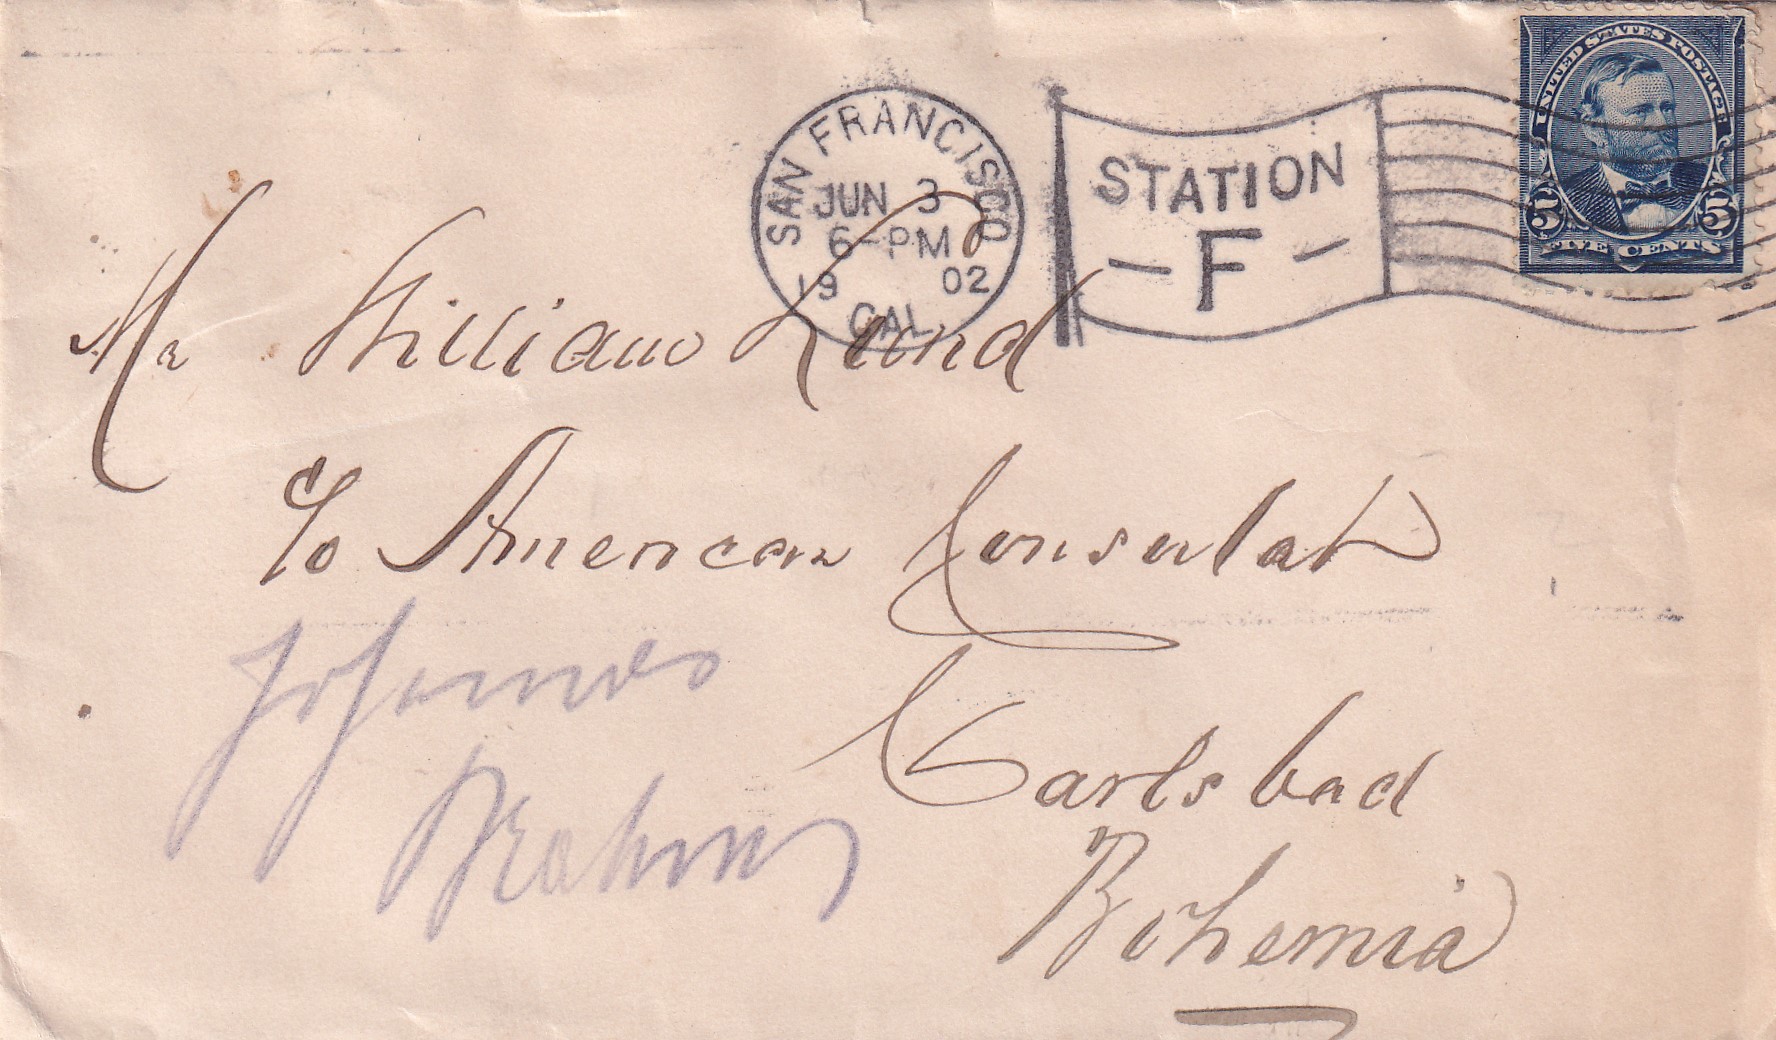 UNITED STATES POSTAGE
5 5
FIVE CENTS
SAN FRANCISCO
JUN 3
6-PM
19 02
CAL.
STATION
- F -
Mr William Lund
c/o American Consulat
Johannes
Brahms
Carlsbad
Bohemia